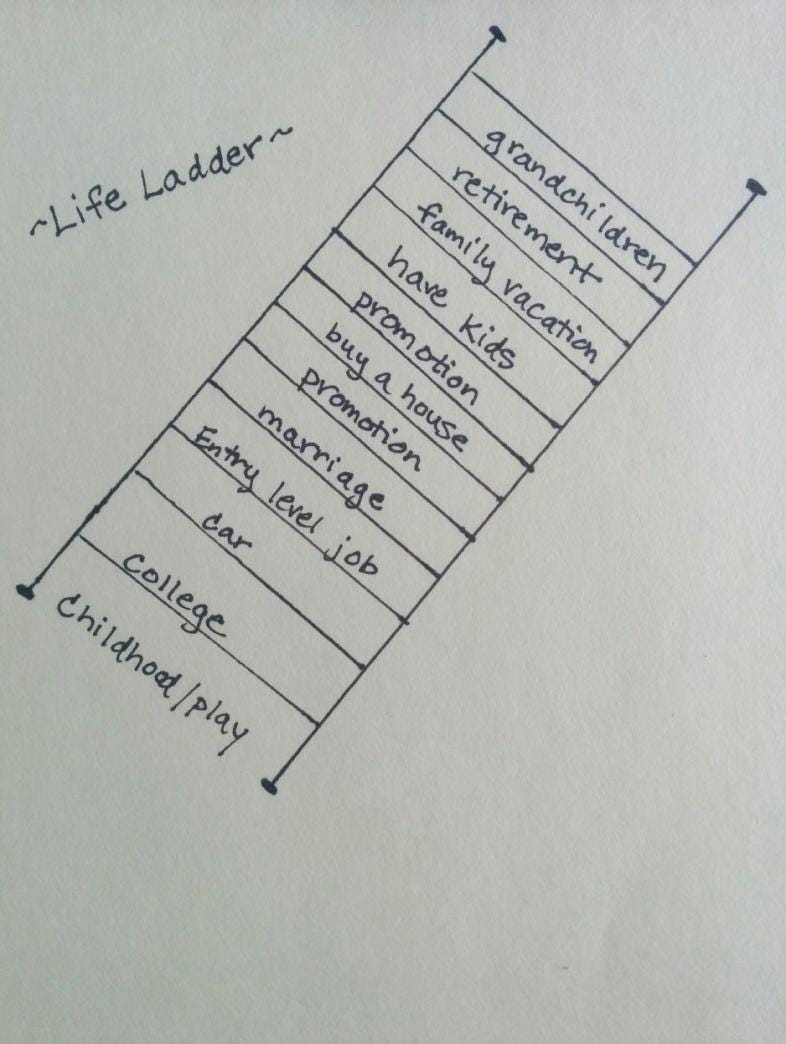 ~Life Ladder~
grandchildren
retirement
family vacation
have kids
promotion
buy a house
promotion
marriage
Entry level job
car
college
Childhood/play